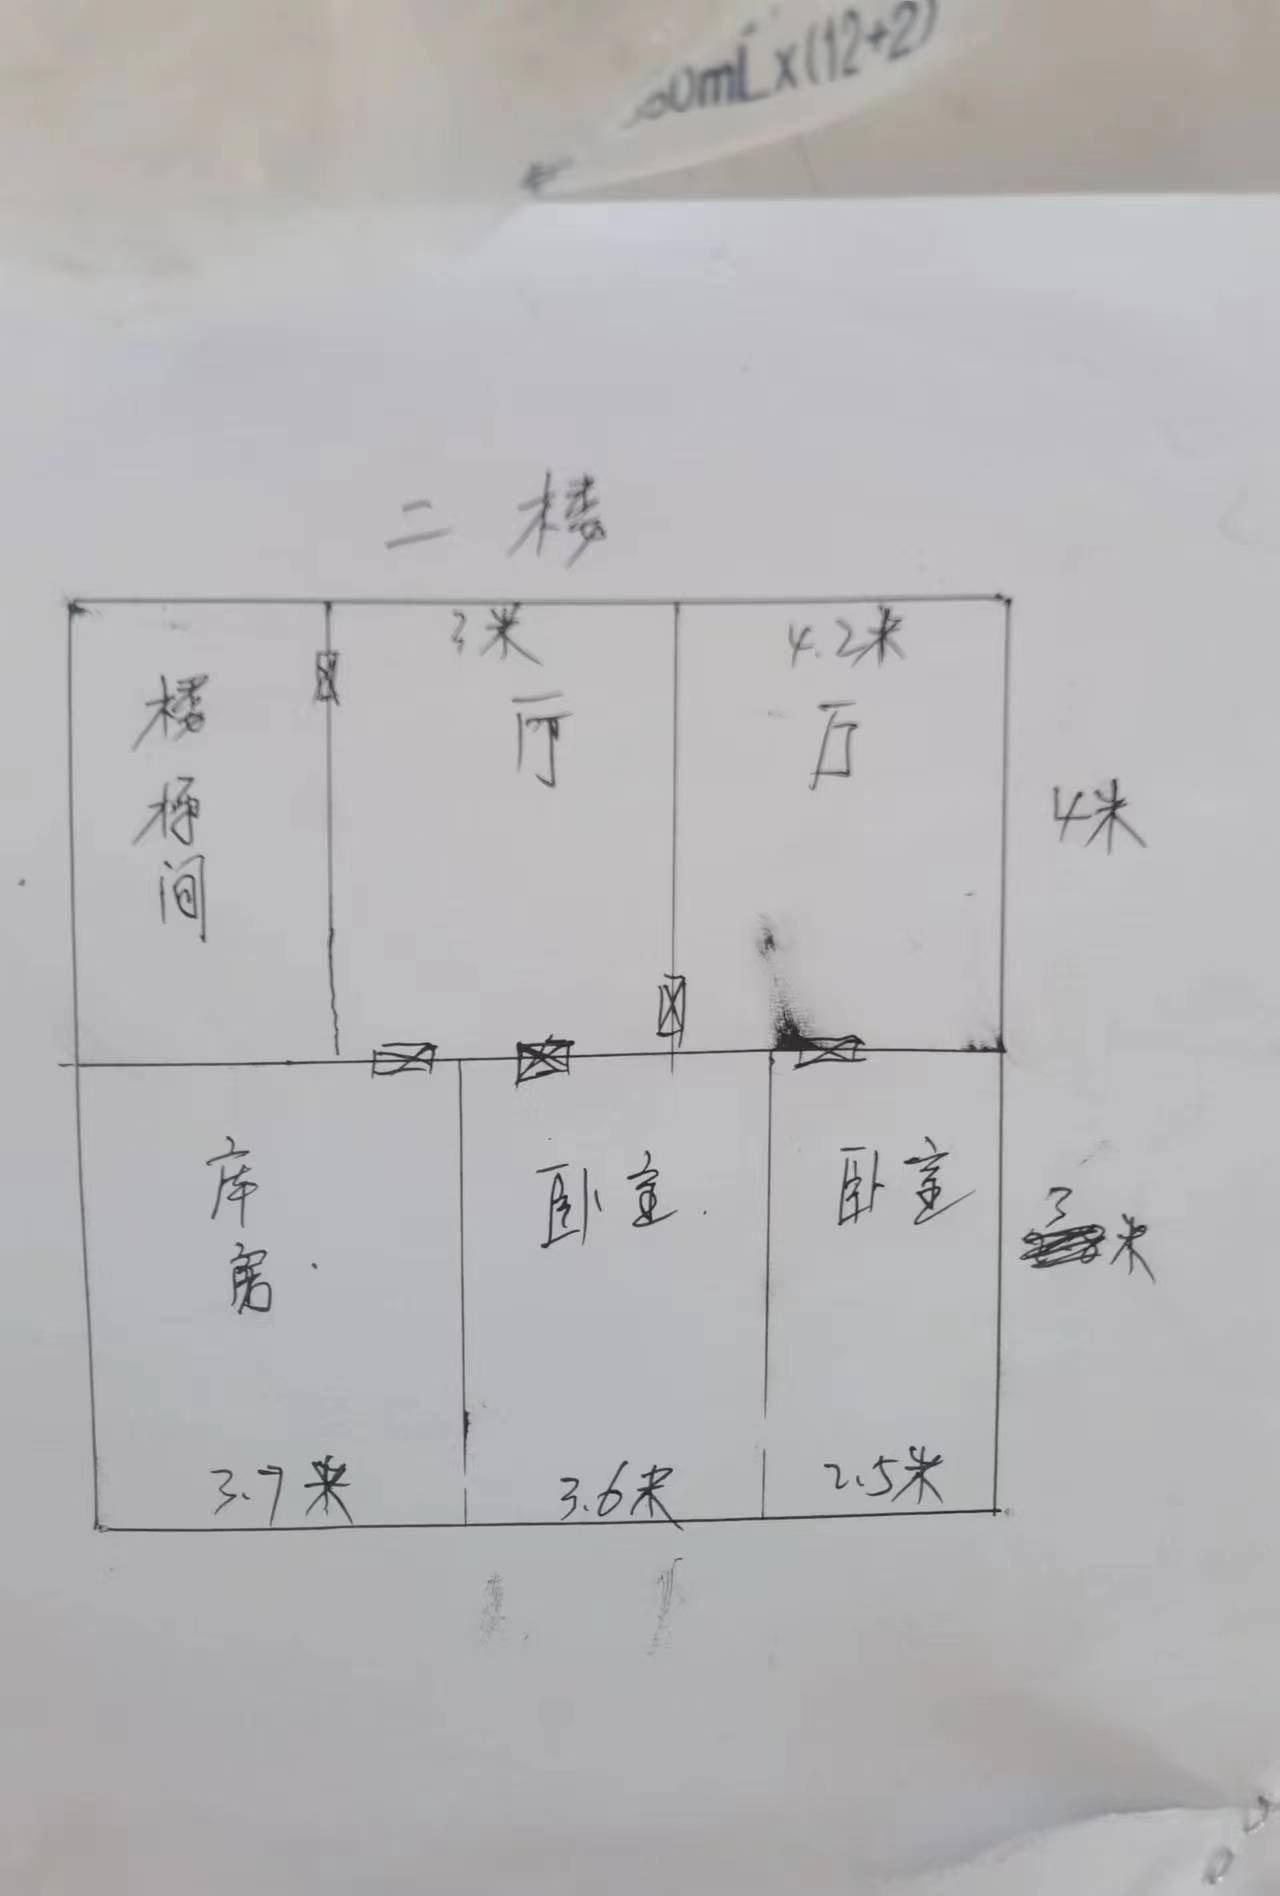 0mL×(12+2)
二楼
3米
4.2米
楼梯间
厅
厅
4米
库房
卧室
卧室
3米
3.7米
3.6米
2.5米